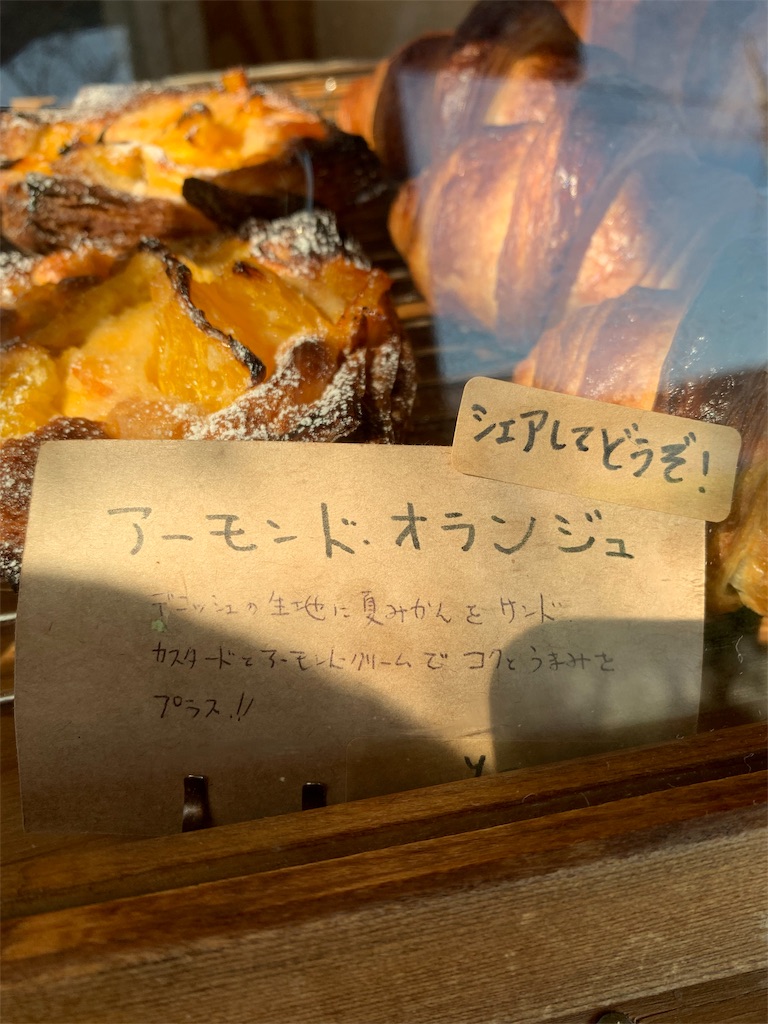 シェアしてどうぞ!
アーモンド・オランジュ
デニッシュの生地に夏みかんをサンド.
カスタードとアーモンドクリームでコクとうまみを
プラス!!
¥